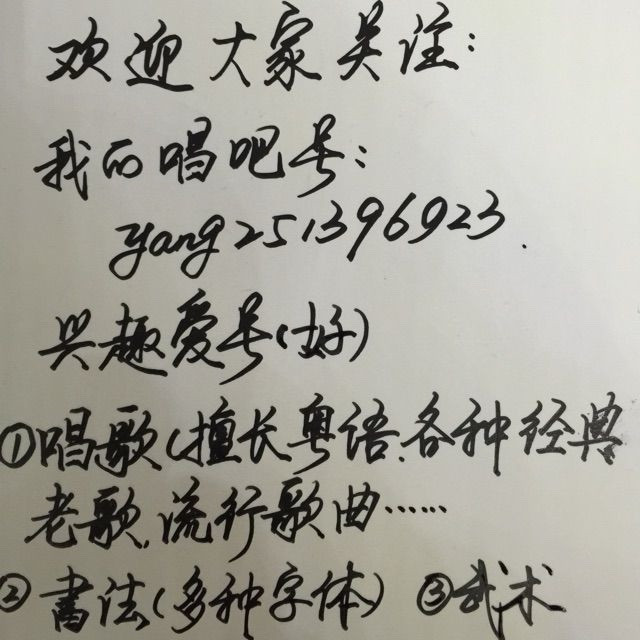 欢迎大家关注:
我的唱吧号:
yang251396923.
兴趣爱号(好)
①唱歌(擅长粤语、各种经典
老歌、流行歌曲……
②書法(多种字体) ③武术